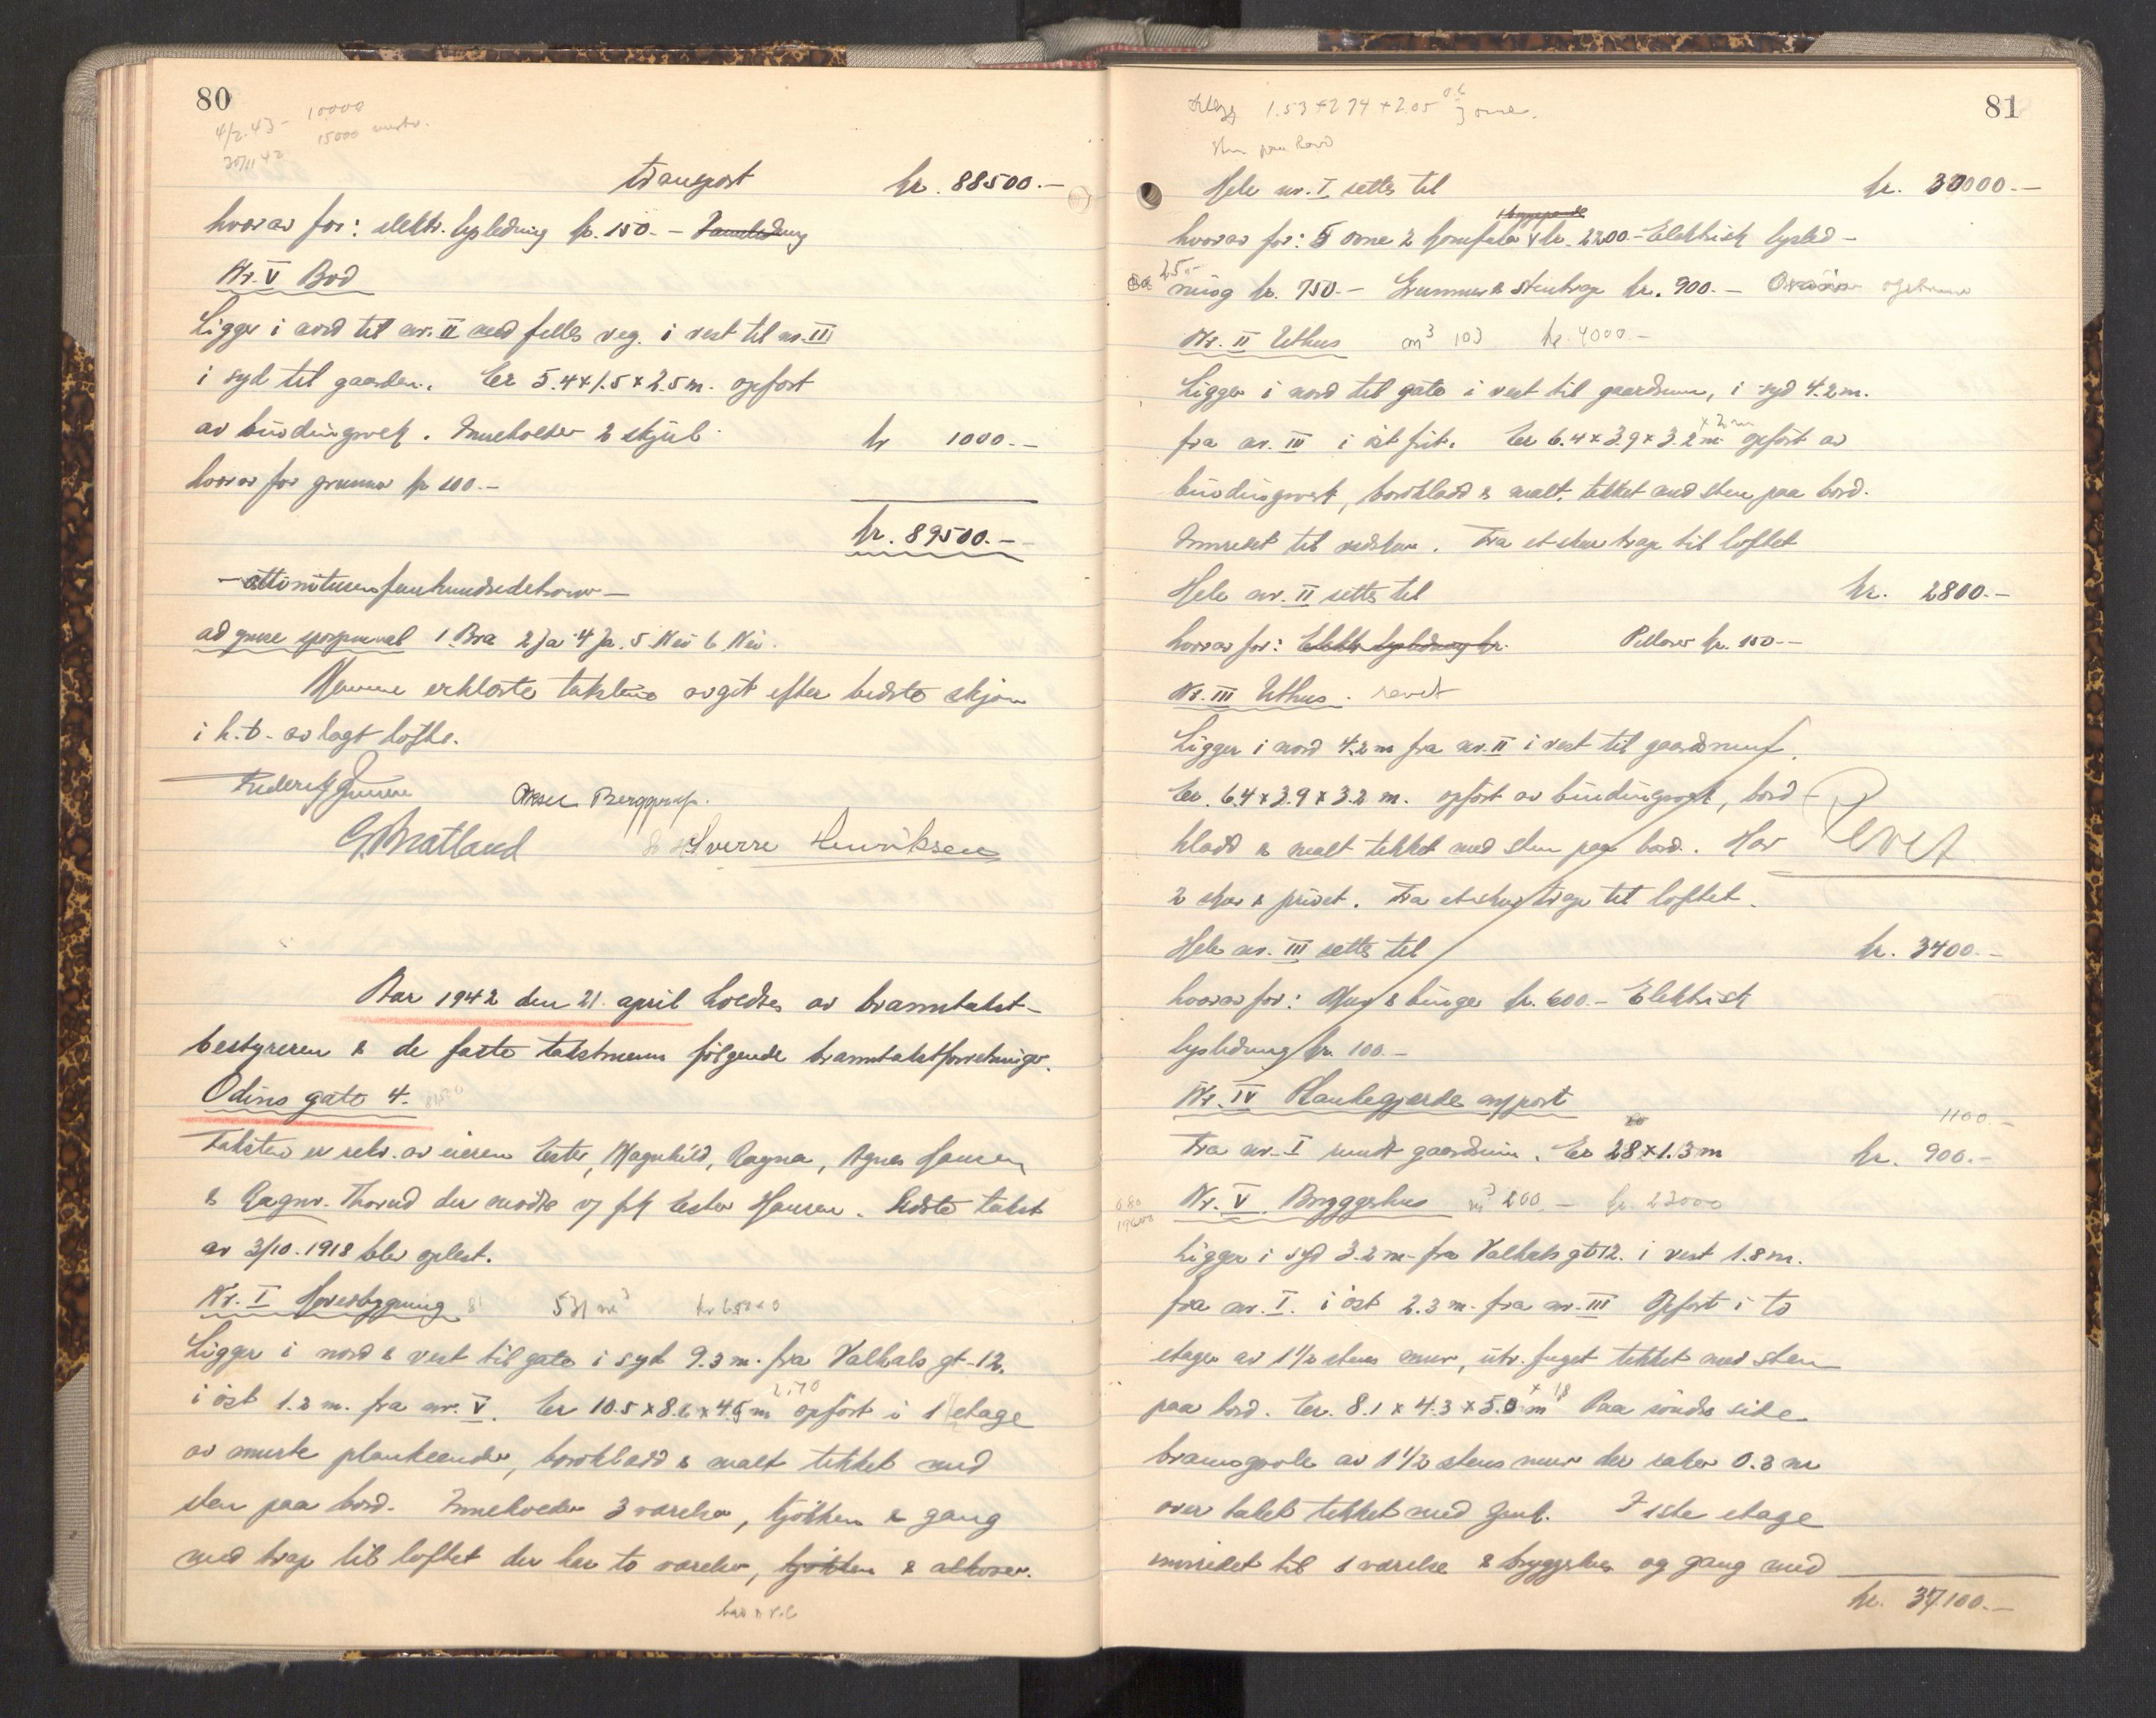 80
4/2.43- 10000
15000
20/11 42
transport kr. 88500.-
hvorav for: elektr. lysledning kr. 150.-
Nr. V Bod
Ligger i nord til nr. II med felles veg. i vest til nr. III
i syd til gaarden. Er 5.4 x 1.5 x 2.5 m. opført
av bindingsverk. Inneholder 2 skjul kr 1000.-
hvorav for grunnm kr 100.-
kr. 89500.-
-ottinitusenfemhundredekroner-
ad gmre spørsmaal 1 Bra 2 Ja 4 Ja. 5 Nei 6 Nei.
Mennene erklærte taksten avgit efter bedste skjøn
i h.t. avlagt løfte.
G. Bratland
Sverre Henriksen
Aar 1942 den 21. april holdtes av branntakst-
bestyreren & de faste takstmenn følgende branntakstforretninger.
Odins gate 4.
Taksten er rekv. av eieren Ester, Magnhild, Ragna, Agnes Hansen
& Ragnv. Thorud der møtte v/ frk Ester Hansen. Sidste takst
av 3/10.1918 blev oplest.
Nr. I Hovedbygning 531 m³
Ligger i nord & vest til gate i syd 9.3 m. fra Valhals gt. 12.
i øst 1.2 m. fra nr. V. Er 10.5 x 8.6 x 4.5 m opført i 1 etage
av murte plankeender, bordkledd & malt tekket med
sten paa bord. Inneholder 3 værelser, kjøkken & gang
med trap til loftet der har to værelser, kjøkken & alkover.
81
1.53 + 2.74 + 2.05
sten paa bord
Hele nr. I settes til kr. 30000.-
hvorav for: 5 ovne 2 komfyrer kr. 2200.- Elektrisk lysled-
ning kr. 750.- Grunnmur & stentrap kr. 900.-
Nr. II Uthus m³ 103 kr. 4000.-
Ligger i nord til gate i vest til gaardsrum, i syd 4.2 m.
fra nr. III i øst frit. Er 6.4 x 3.9 x 3.2 m opført av
bindingsverk, bordkledd & malt, tekket med sten paa bord.
Innredet til vedskur. Fra et skur trap til loftet
Hele nr. II settes til kr. 2800.-
hvorav for: Elektr lysledning kr. Pillarer kr. 150.-
Nr. III Uthus. revet
Ligger i nord 4.2 m fra nr. II i vest til gaardsrum.
Er. 6.4 x 3.9 x 3.2 m. opført av bindingsverk, bord-
kledd & malt tekket med sten paa bord. Har
Revet
2 skur & privet. Fra et skur trap til loftet.
Hele nr. III settes til kr. 3400.-
hvorav for: Mur & binge kr. 600.- Elektrisk
lysledning kr. 100.-
Nr. IV Plankegjerde m/port
1100.-
Fra nr. I rundt gaardsrum. Er 28 x 1.3 m kr. 900.-
Nr. V. Bryggerhus m³ 200.- kr. 23000
Ligger i syd 3.2 m. fra Valhals gt 12. i vest 1.8 m.
fra nr. I. i øst 2.3 m. fra nr. III Opført i to
etager av 1½ stens mur, utv. fuget tekket med sten
paa bord. Er. 8.1 x 4.3 x 5.0 m Paa søndre side
branngavle av 1½ stens mur der raker 0.3 m
over taket tekket med zink. I 1ste etage
innredet til 1 værelse & bryggerhus og gang med
kr. 37100.-